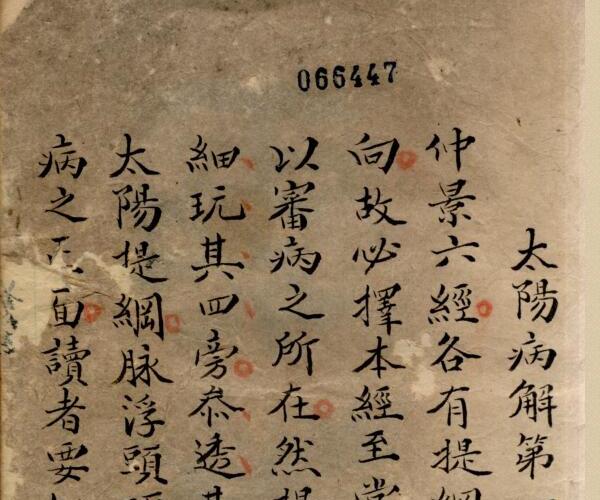 066447
太陽病解第
仲景六經各有提綱
向故必擇本經至當
以審病之所在然提
細玩其四旁叅透其
太陽提綱脉浮頭項
病之正面讀者要